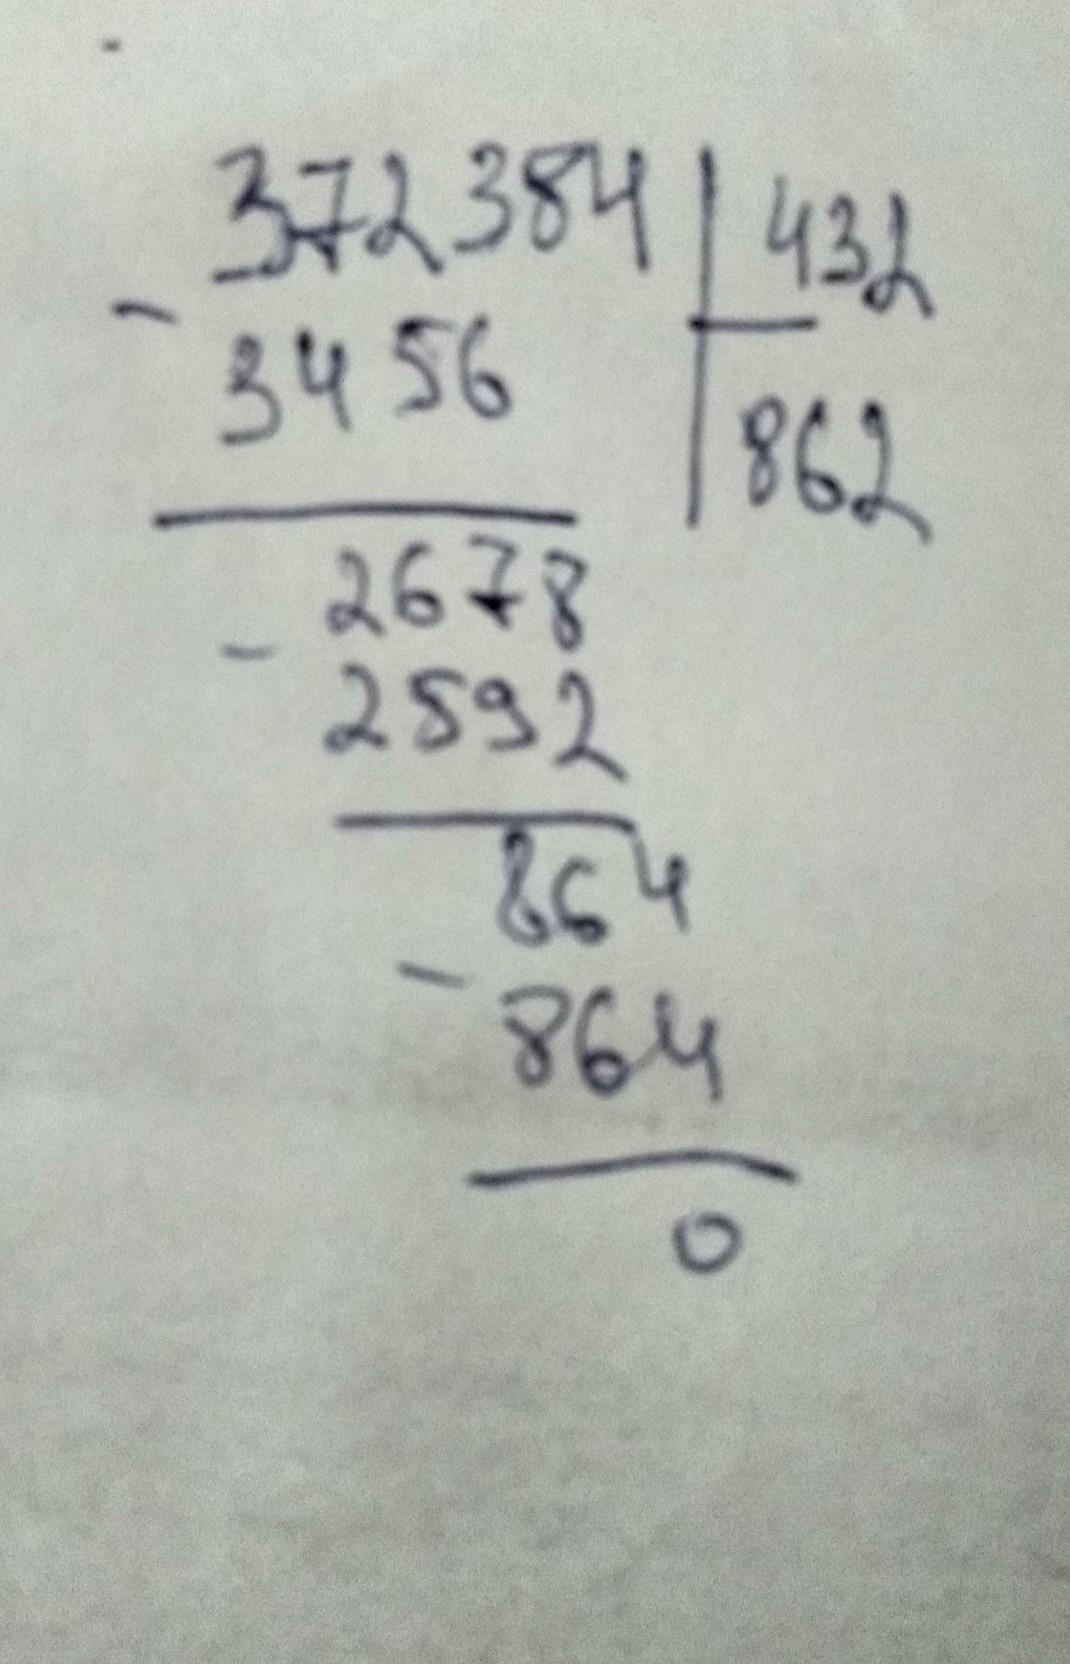 372384 | 432
- 3456 | 862
2678
- 2592
864
- 864
0